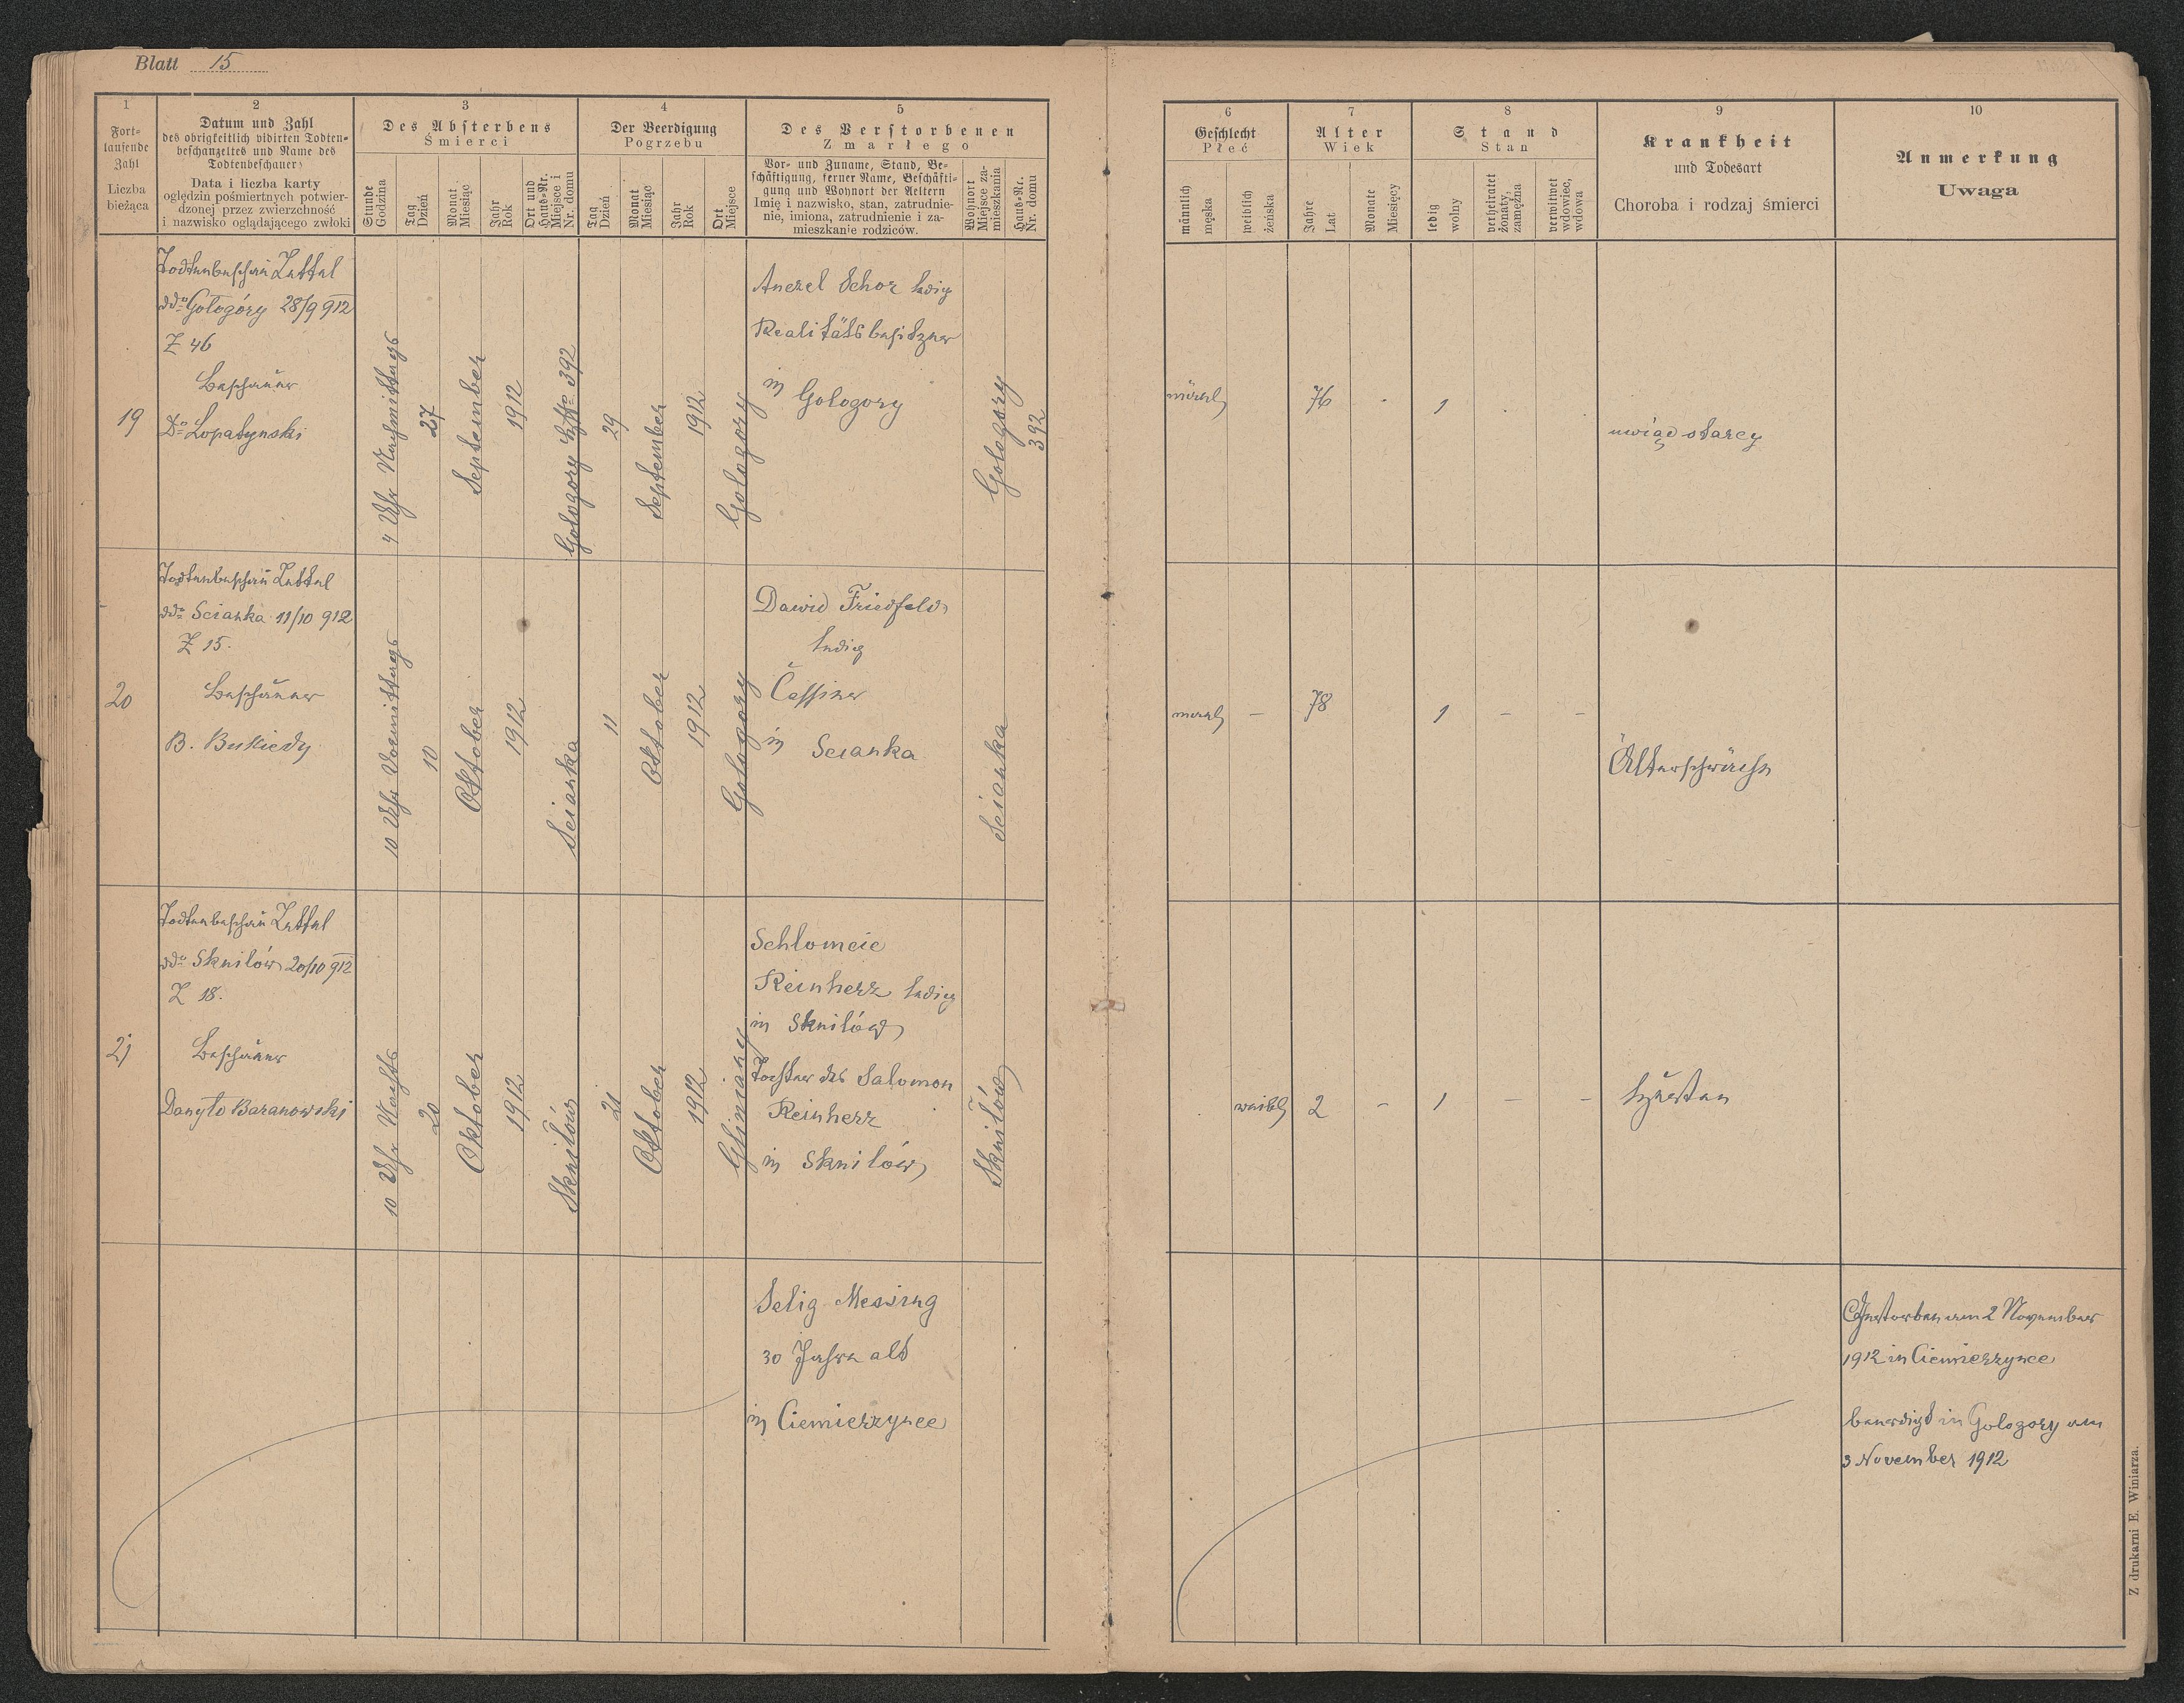 Blatt 15
1
Fort-
laufende
Zahl
Liczba
bieżąca
2
Datum und Zahl
des obrigkeitlich vidirten Todten-
beschauzettels und Name des
Todtenbeschauers
Data i liczba karty
oględzin pośmiertnych potwier-
dzonej przez zwierzchność
i nazwisko oglądającego zwłoki
3
Des Absterbens
Śmierci
Stunde
Godzina
Tag
Dzień
Monat
Miesiąc
Jahr
Rok
Ort und
Haus-Nr.
Miejsce i
Nr. domu
4
Der Beerdigung
Pogrzebu
Tag
Dzień
Monat
Miesiąc
Jahr
Rok
Ort
Miejsce
5
Des Verstorbenen
Zmarłego
Vor- und Zuname, Stand, Be-
schäftigung, ferner Name, Beschäfti-
gung und Wohnort der Aeltern
Imię i nazwisko, stan, zatrudnie-
nie, imiona, zatrudnienie i za-
mieszkanie rodziców.
Wohnort
Miejsce za-
mieszkania
Haus-Nr.
Nr. domu
6
Geschlecht
Płeć
männlich
męska
weiblich
żeńska
7
Alter
Wiek
Jahre
Lat
Monate
Miesięcy
8
Stand
Stan
ledig
wolny
verheiratet
żonaty,
zamężna
verwitwet
wdowiec,
wdowa
9
Krankheit
und Todesart
Choroba i rodzaj śmierci
10
Anmerkung
Uwaga
19
Todtenbeschau Zettel
ddo Gołogóry 28/9 912
Z 46
Beschauer
Dr Lopatynski
4 Uhr Nachmittags
27
September
1912
Gologory 392
29
September
1912
Gologory
Anczel Schor ledig
Realitätsbesitzer
in Gologory
Gologory
392
männl
76
-
1
uwiąd starcy
20
Todtenbeschau Zettel
ddo Scianka 11/10 912
Z 15.
Beschauer
B. Bukiedy
10 Uhr Vormittags
10
Oktober
1912
Scianka
11
Oktober
1912
Gologory
Dawid Friedfeld
ledig
in Scianka
Scianka
männl
-
78
1
-
-
Alterschwäche
21
Todtenbeschau Zettel
ddo Sknilów 20/10 912
Z 18.
Beschauer
Danyło Baranowski
10 Uhr Nachts
20
Oktober
1912
Sknilów
21
Oktober
1912
Gliniany
Schlomcie
Reinherz ledig
in Sknilów
Tochter des Salomon
Reinherz
in Sknilów
Sknilów
weibl
2
-
1
-
-
Husten
Selig Messing
30 Jahre alt
in Ciemierzynce
Gestorben am 2 November
1912 in Ciemierzynce
beerdigt in Gologory am
3 November 1912
Z drukarni E. Winiarza.